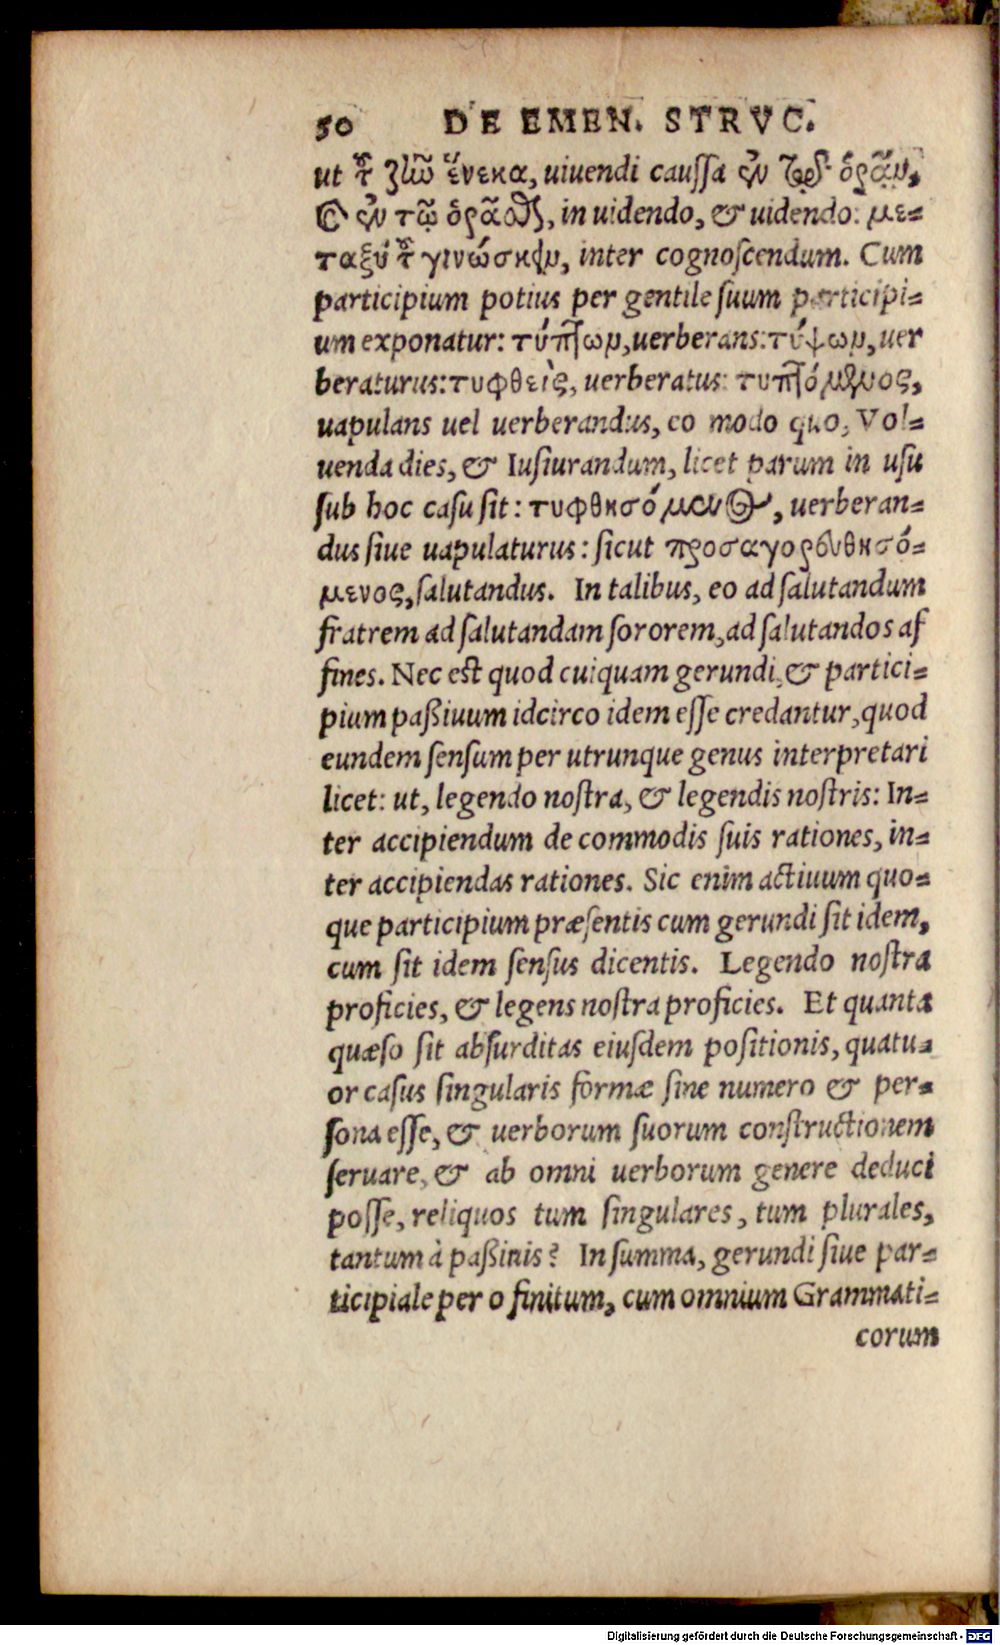 50 DE EMEN. STRVC.
ut τοῦ ζῆν ἕνεκα, uiuendi caussa ἐν ὁρᾶν,
ἐν τῷ ὁρᾶσθαι, in uidendo, & uidendo: με=
ταξὺ τοῦ γινώσκειν, inter cognoscendum. Cum
participium potius per gentile suum participi=
um exponatur: τύπτων, uerberans: τύψων, uer
beraturus: τυφθεὶς, uerberatus: τυπτόμενος,
uapulans uel uerberandus, eo modo quo, Vol=
uenda dies, & Iusiurandum, licet parum in usu
sub hoc casu sit: τυφθησόμενος, uerberan=
dus siue uapulaturus: sicut προσαγορευθησό=
μενος, salutandus. In talibus, eo ad salutandum
fratrem ad salutandam sororem, ad salutandos af
fines. Nec est quod cuiquam gerundi, & partici=
pium paßiuum idcirco idem esse credantur, quod
eundem sensum per utrunque genus interpretari
licet: ut, legendo nostra, & legendis nostris: In=
ter accipiendum de commodis suis rationes, in=
ter accipiendas rationes. Sic enim actiuum quo=
que participium præsentis cum gerundi sit idem,
cum sit idem sensus dicentis. Legendo nostra
proficies, & legens nostra proficies. Et quanta
quæso sit absurditas eiusdem positionis, quatu=
or casus singularis formæ sine numero & per=
sona esse, & uerborum suorum constructionem
seruare, & ab omni uerborum genere deduci
posse, reliquos tum singulares, tum plurales,
tantum à paßiuis? In summa, gerundi siue par=
ticipiale per o finitum, cum omnium Grammati=
corum
Digitalisierung gefördert durch die Deutsche Forschungsgemeinschaft - DFG